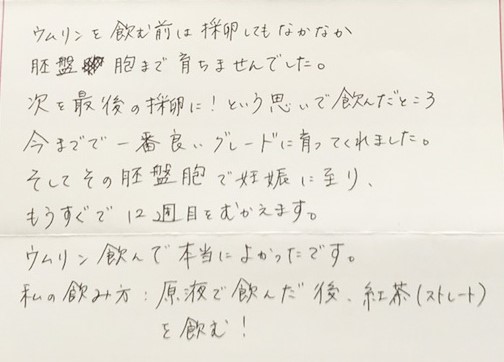 ウムリンを飲む前は採卵してもなかなか
胚盤胞まで育ちませんでした。
次を最後の採卵に！という思いで飲んだところ
今までで一番良いグレードに育ってくれました。
そしてその胚盤胞で妊娠に至り、
もうすぐで12週目をむかえます。
ウムリン飲んで本当によかったです。
私の飲み方：原液で飲んだ後、紅茶(ストレート)
を飲む！